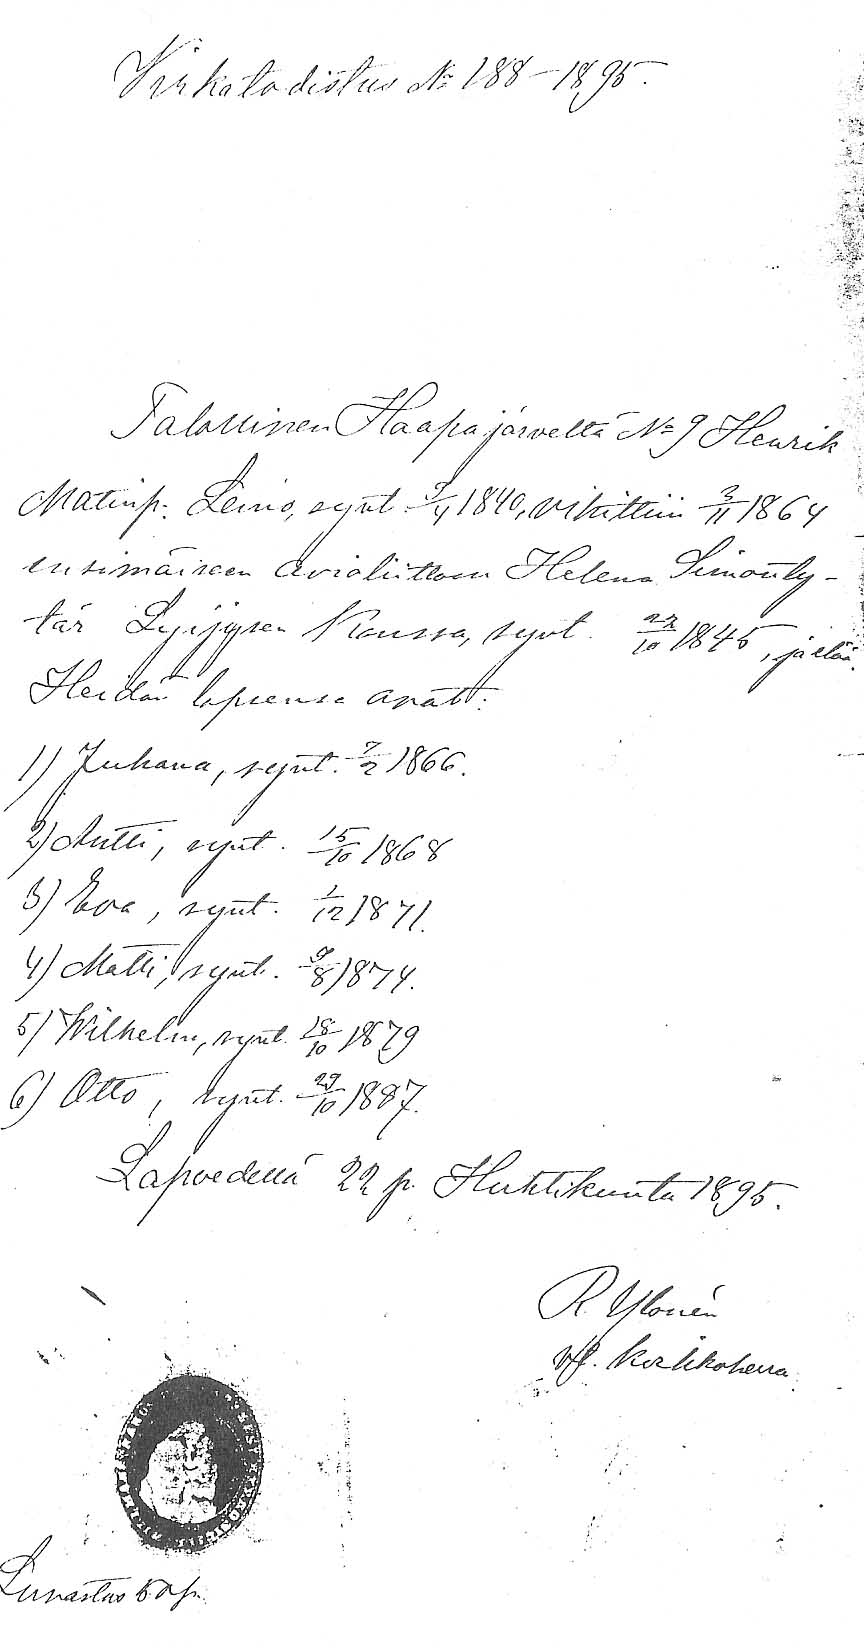 Virkatodistus No 188-1895.
Talollinen Haapajärveltä No 9 Henrik
Matinp. Leino, synt. 1840, vihittiin 3/11 1864
ensimäiseen avioliittoon Helena Simonty-
tär Lyijysen kanssa, synt. 22/10 1845,
Heidän lapsensa ovat:
1) Juhana, synt. 7/2 1866.
2) Antti, synt. 15/10 1868
3) Eva, synt. 1/12 1871.
4) Matti, synt. 9/8 1874.
5) Wilhelm, synt. 18/10 1879
6) Otto, synt. 29/10 1887.
Lapveden 22 p. Huhtikuuta 1895.
R. Ylönen
vt. kirkkoherra.
Lunastus 50 p.